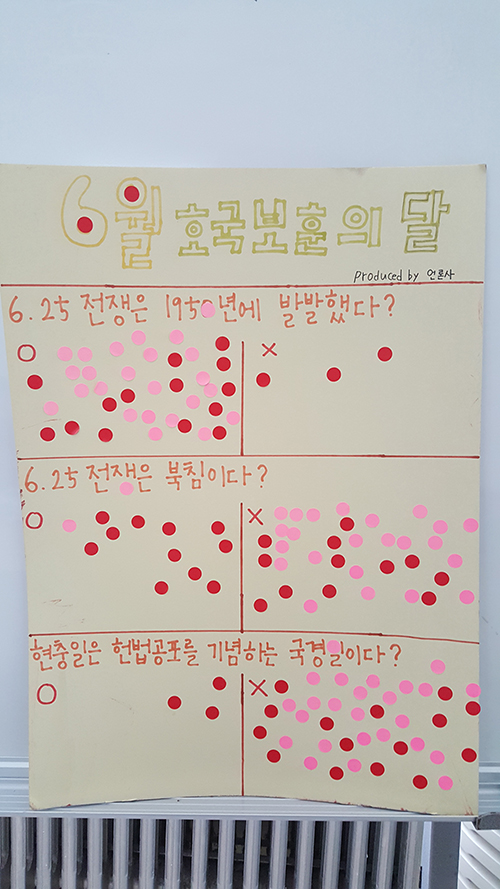 6월 호국보훈의 달
Produced by 언론사
6.25 전쟁은 1950년에 발발했다?
O X
6.25 전쟁은 북침이다?
O X
현충일은 헌법공포를 기념하는 국경일이다?
O X